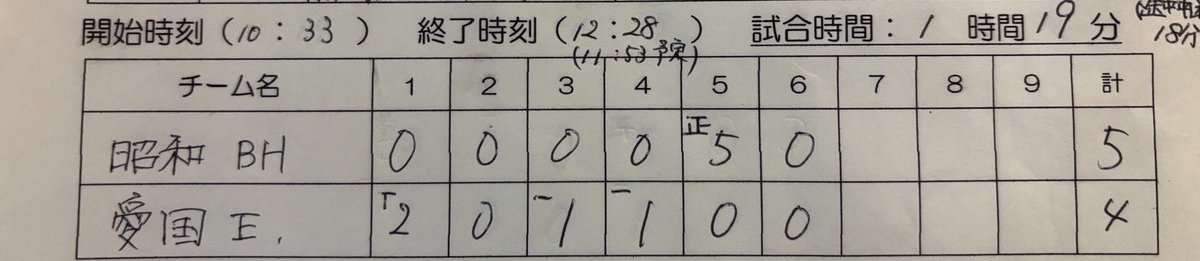 開始時刻(10:33) 終了時刻(12:28) 試合時間:1 時間19分
(11:53予定) 18分
チーム名 1 2 3 4 5 6 7 8 9 計
昭和 BH 0 0 0 0 正5 0 5
愛国 E. 2 0 1 1 0 0 4